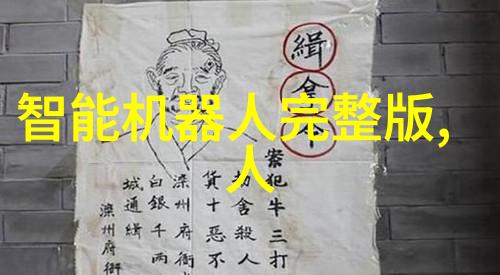 智能机器人完整版,
人
緝
案犯牛三打
舍殺人
貨十惡不
滦州府
白銀千兩
城通緝
滦州府衙